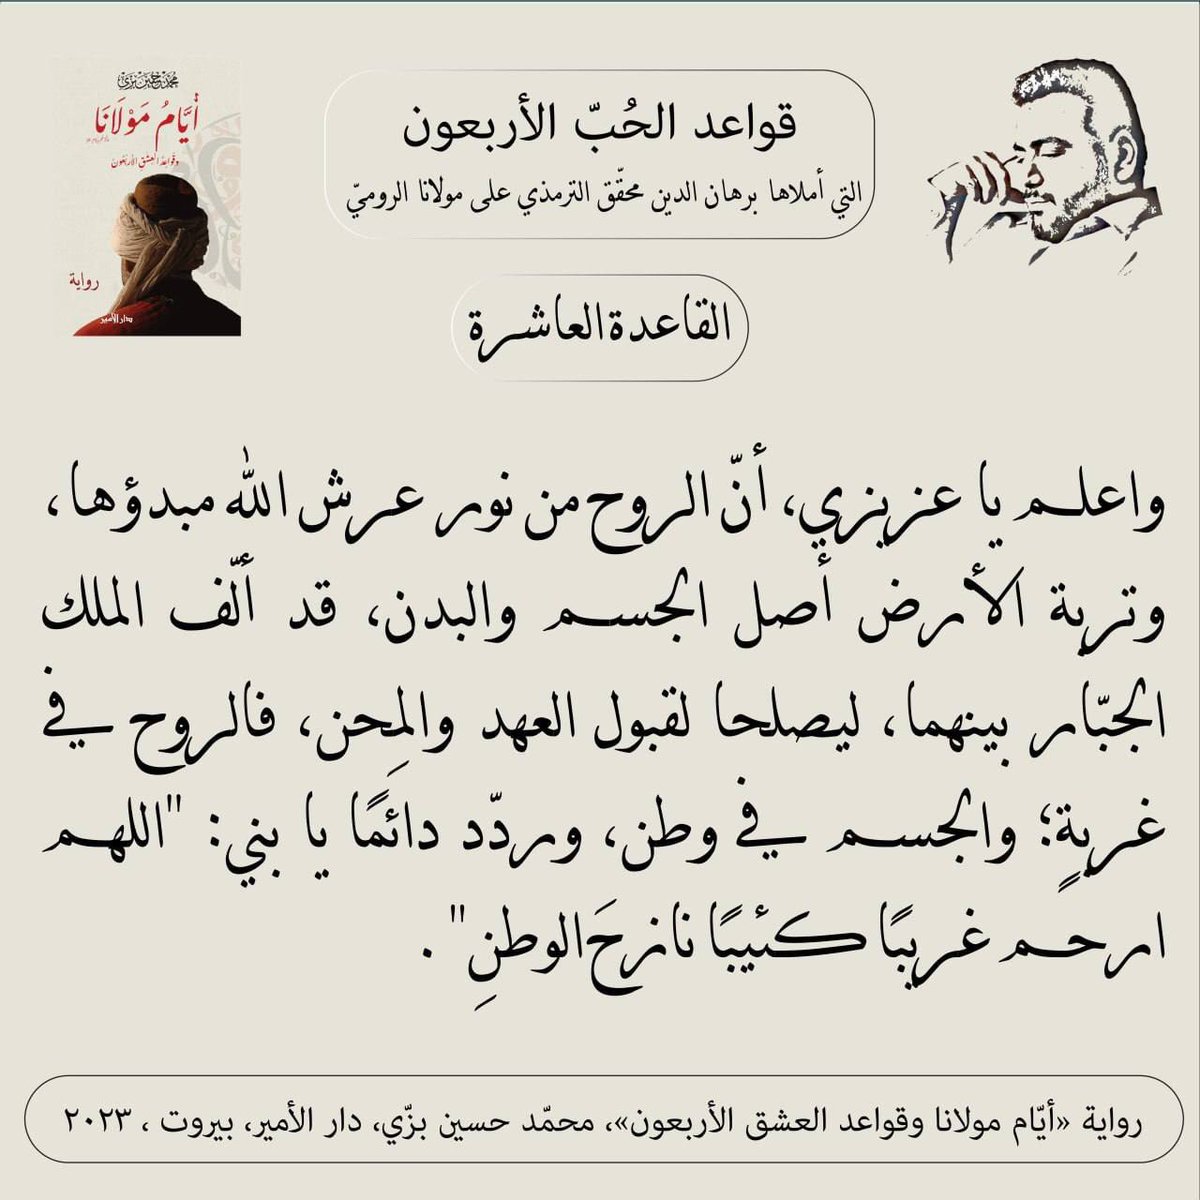 محمد حسين بزي
أيَّامُ مَوْلَانَا
وقواعد العشق الأربعون
رواية
دار الأمير
قواعد الحُبّ الأربعون
التي أملاها برهان الدين محقّق الترمذي على مولانا الروميّ
القاعدة العاشرة
واعلم يا عزيزي، أنّ الروح من نور عرش الله مبدؤها،
وتربة الأرض أصل الجسم والبدن، قد ألّف الملك
الجبّار بينهما، ليصلحا لقبول العهد والمِحن، فالروح في
غربةٍ؛ والجسم في وطن، وردّد دائمًا يا بني: "اللهم
ارحم غريبًا كئيبًا نازحَ الوطنِ" .
رواية «أيّام مولانا وقواعد العشق الأربعون»، محمّد حسين بزّي، دار الأمير، بيروت ، ٢٠٢٣